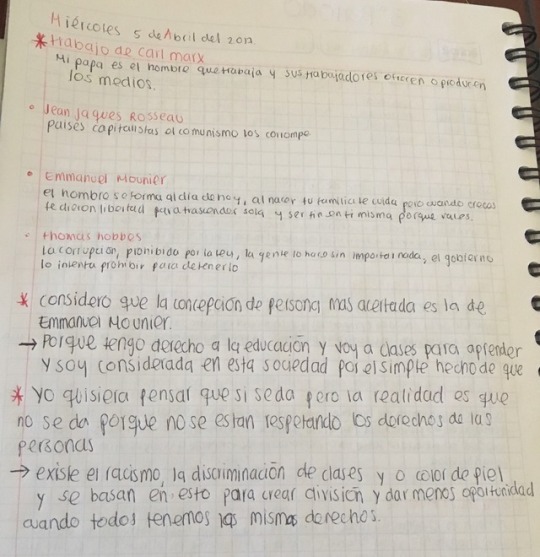 Miércoles 5 de Abril del 2017
* trabajo de carl marx
Mi papa es el hombre que trabaja y sus trabajadores ofrecen o producen
los medios.
• Jean Jaques Rosseau
paises capitalistas al comunismo los corrompe
• Emmanuel Mounier
el hombre se forma al dia de hoy, al nacer tu familia te cuida pero cuando crezcas
te dieron libertad para trascender sola y ser fin en ti misma porque vales.
- thomas hobbes
la corrupcion, prohibido por la ley, la gente lo hace sin importar nada, el gobierno
lo intenta prohibir para detenerlo
* considero que la concepcion de persona mas acertada es la de
Emmanuel Mounier.
→ Porque tengo derecho a la educación y voy a clases para aprender
y soy considerada en esta sociedad por el simple hecho de que
* yo quisiera pensar que si se da pero la realidad es que
no se da porque no se estan respetando los derechos de las
personas
→ existe el racismo, la discriminación de clases y o color de piel
y se basan en esto para crear división y dar menos oportunidad
cuando todos tenemos los mismos derechos.